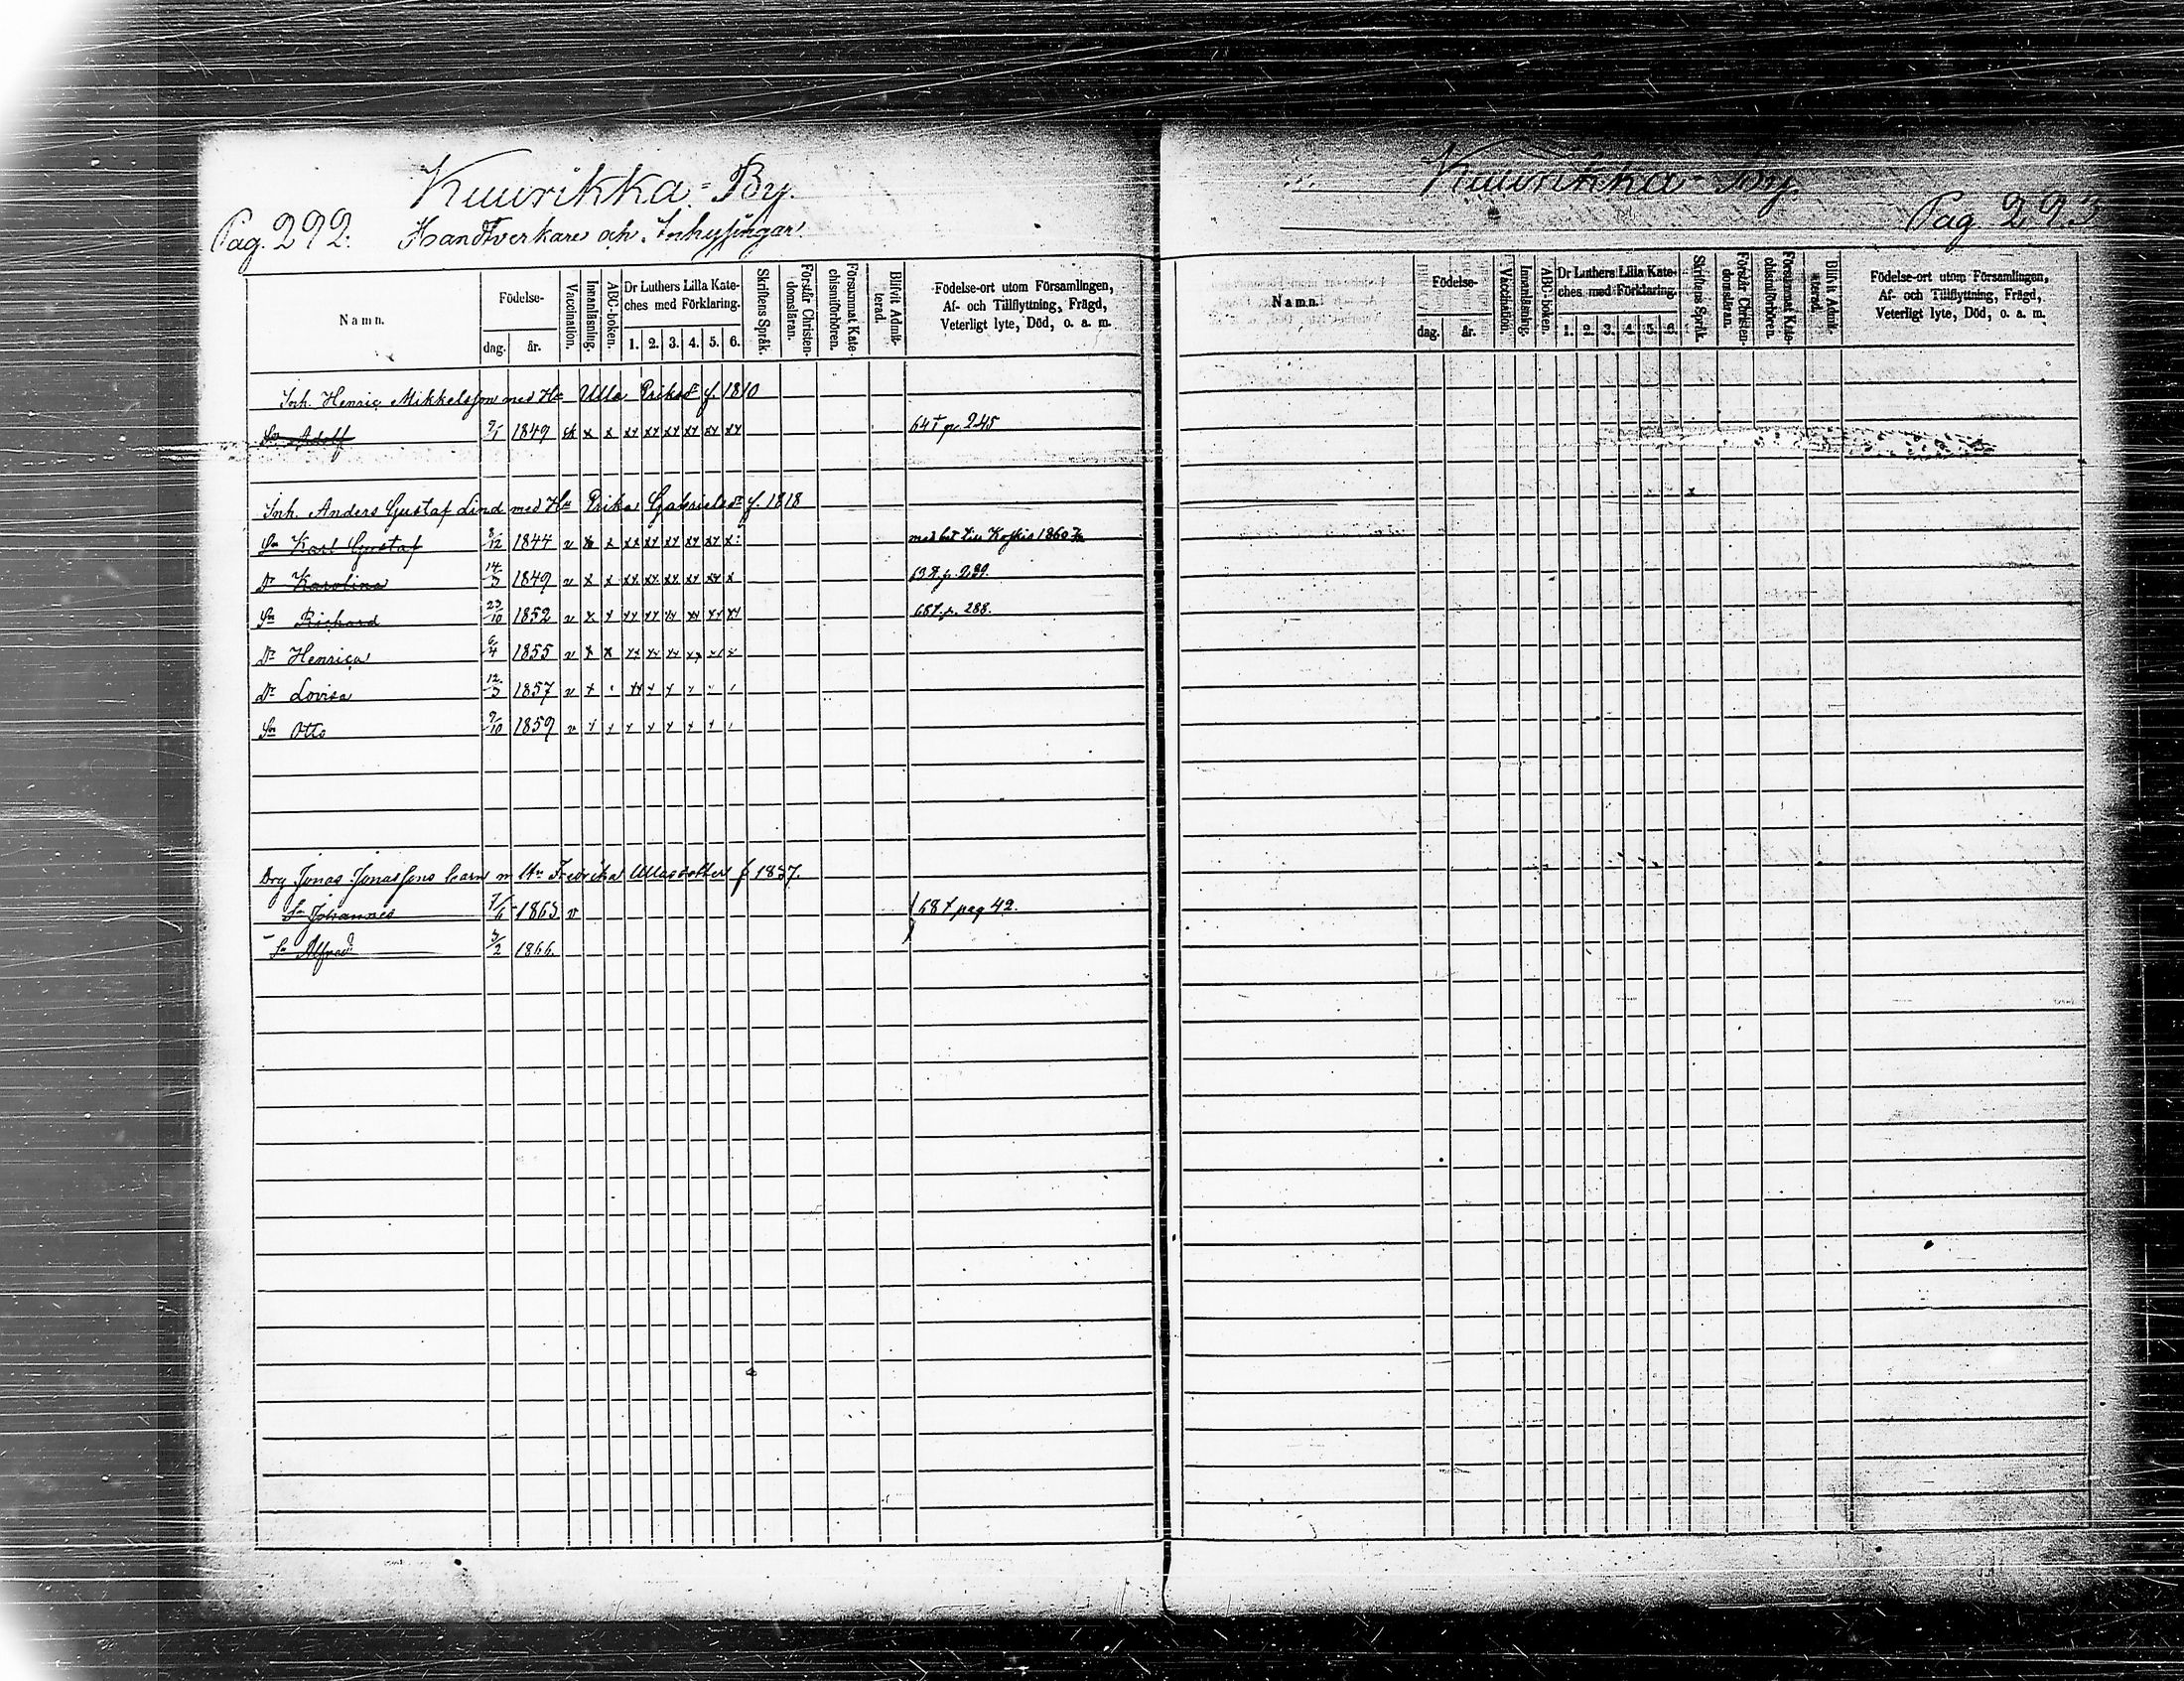 Kuurikka-By.
Pag. 292. Handtverkare och Inhysingar.
Namn. Födelse- dag. år. Vaccination. Innanläsning. ABC-boken. Dr Luthers Lilla Kateches med Förklaring. 1. 2. 3. 4. 5. 6. Skriftens Språk. Förstår Christendomsläran. Försummat Katechismiförhören. Blifvit Admitterad. Födelse-ort utom Församlingen, Af- och Tillflyttning, Frägd, Veterligt lyte, Död, o. a. m.
Inh. Henric Mikkelsson med Hu Ulla Eriksdr f. 1810
Sn Adolf 9/1 1849 x x xx xx xx xx xx xx 64 T p. 245
Inh. Anders Gustaf Lind med Hu Erika Gabrielsdr f. 1818
Sn Karl Gustaf 8/12 1844 v x x xx xx xx xx xx x: med bet till Koskis 1860
Dr Karolina 14/3 1849 v x x xx xx xx xx xx x 63 p. 239.
Sn Richard 23/10 1852 v x x xx xx xx xx xx xx 68 T. p. 288.
Dr Henrica 6/4 1855 v x x xx xx xx xx
Dr Lovisa 12/3 1857 v x xx x x
Sn Otto 9/10 1859 v x x x x x x x
Drg Jonas Jonassons barn m Hu Fredrika Ullasdotter f 1837.
Sn Johannes 7/6 1863 v 68 T pag 42.
Sn Alfred 3/2 1866.
Kuurikka-By.
Pag. 293
Namn. Födelse- dag. år. Vaccination. Innanläsning. ABC-boken. Dr Luthers Lilla Kateches med Förklaring. 1. 2. 3. 4. 5. 6. Skriftens Språk. Förstår Christendomsläran. Försummat Katechismiförhören. Blifvit Admitterad. Födelse-ort utom Församlingen, Af- och Tillflyttning, Frägd, Veterligt lyte, Död, o. a. m.